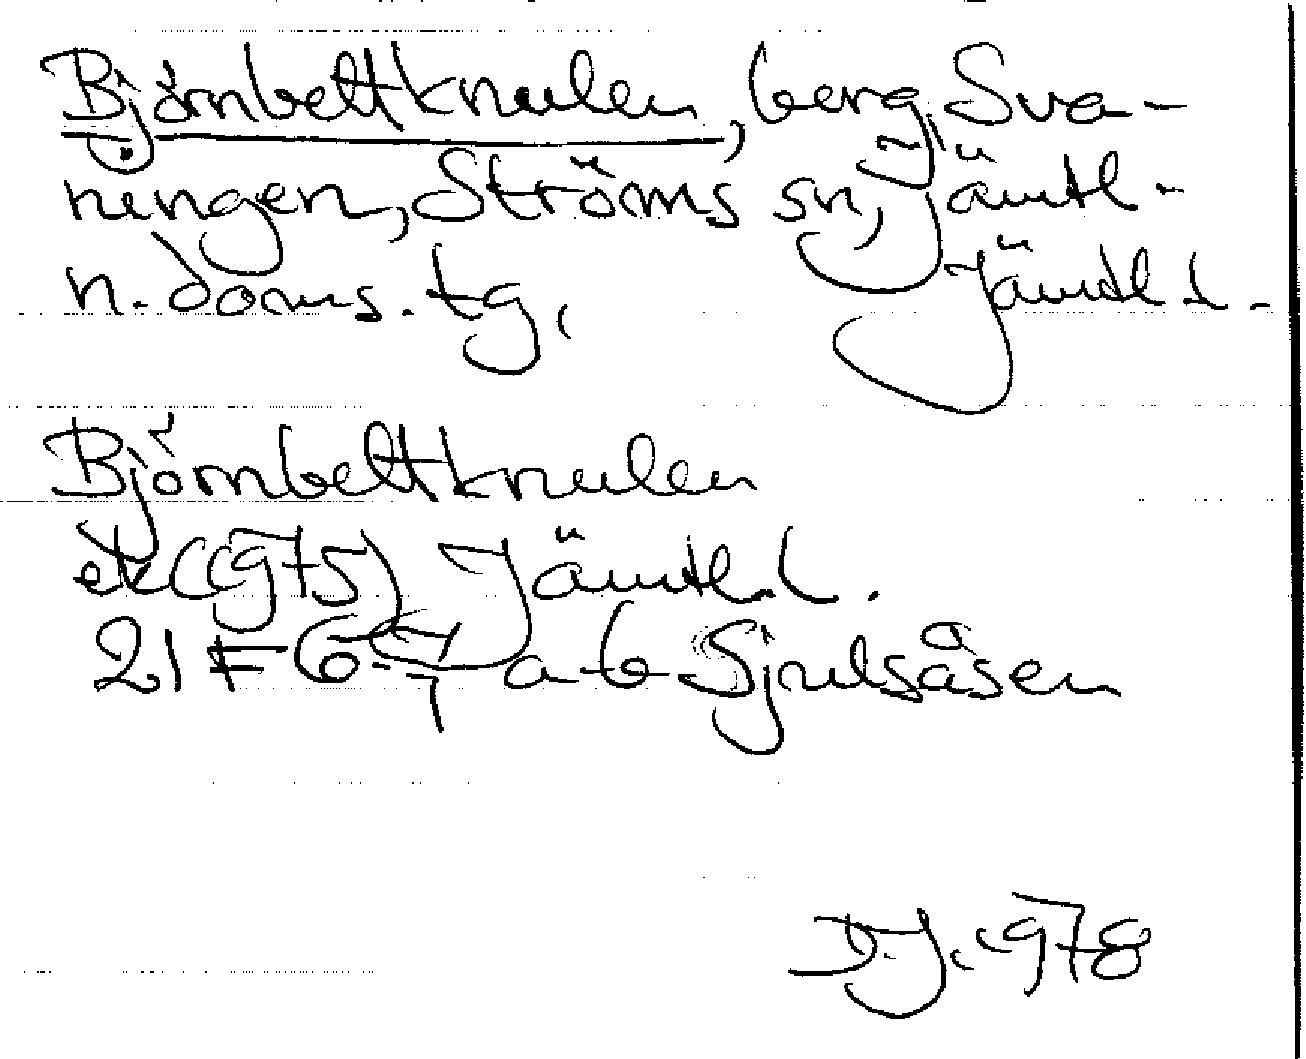 Björnbettknulen, berg, Sva-
ningen, Ströms sn, Jämtl-
n. doms. tg, Jämtl l.
Björnbettknulen
ek (1975) Jämtl. l.
21 F 6-7 a-b Sjulsåsen
D.J. 1978